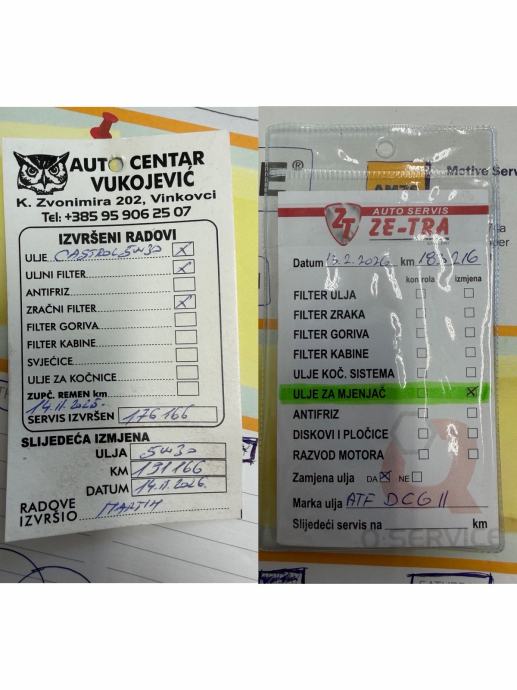 AUTO CENTAR
VUKOJEVIĆ
K. Zvonimira 202, Vinkovci
Tel: +385 95 906 25 07
IZVRŠENI RADOVI
ULJE CASTROL 5W30 X
ULJNI FILTER X
ANTIFRIZ
ZRAČNI FILTER X
FILTER GORIVA
FILTER KABINE
SVJEĆICE
ULJE ZA KOČNICE
ZUPČ. REMEN km
14.11.2025.
SERVIS IZVRŠEN 176166
SLIJEDEĆA IZMJENA
ULJA 5W30
KM 191166
DATUM 14.11.2026.
RADOVE
IZVRŠIO MARTIN
E®
Motive Serv
ZT
AUTO SERVIS
ZE-TRA
Datum 13.2.2026. km 183216
kontrola izmjena
FILTER ULJA
FILTER ZRAKA
FILTER GORIVA
FILTER KABINE
ULJE KOČ. SISTEMA
ULJE ZA MJENJAČ X
ANTIFRIZ
DISKOVI I PLOČICE
RAZVOD MOTORA
Zamjena ulja DA X NE
Marka ulja ATF DCG II
Slijedeći servis na km
Q-SERVICE